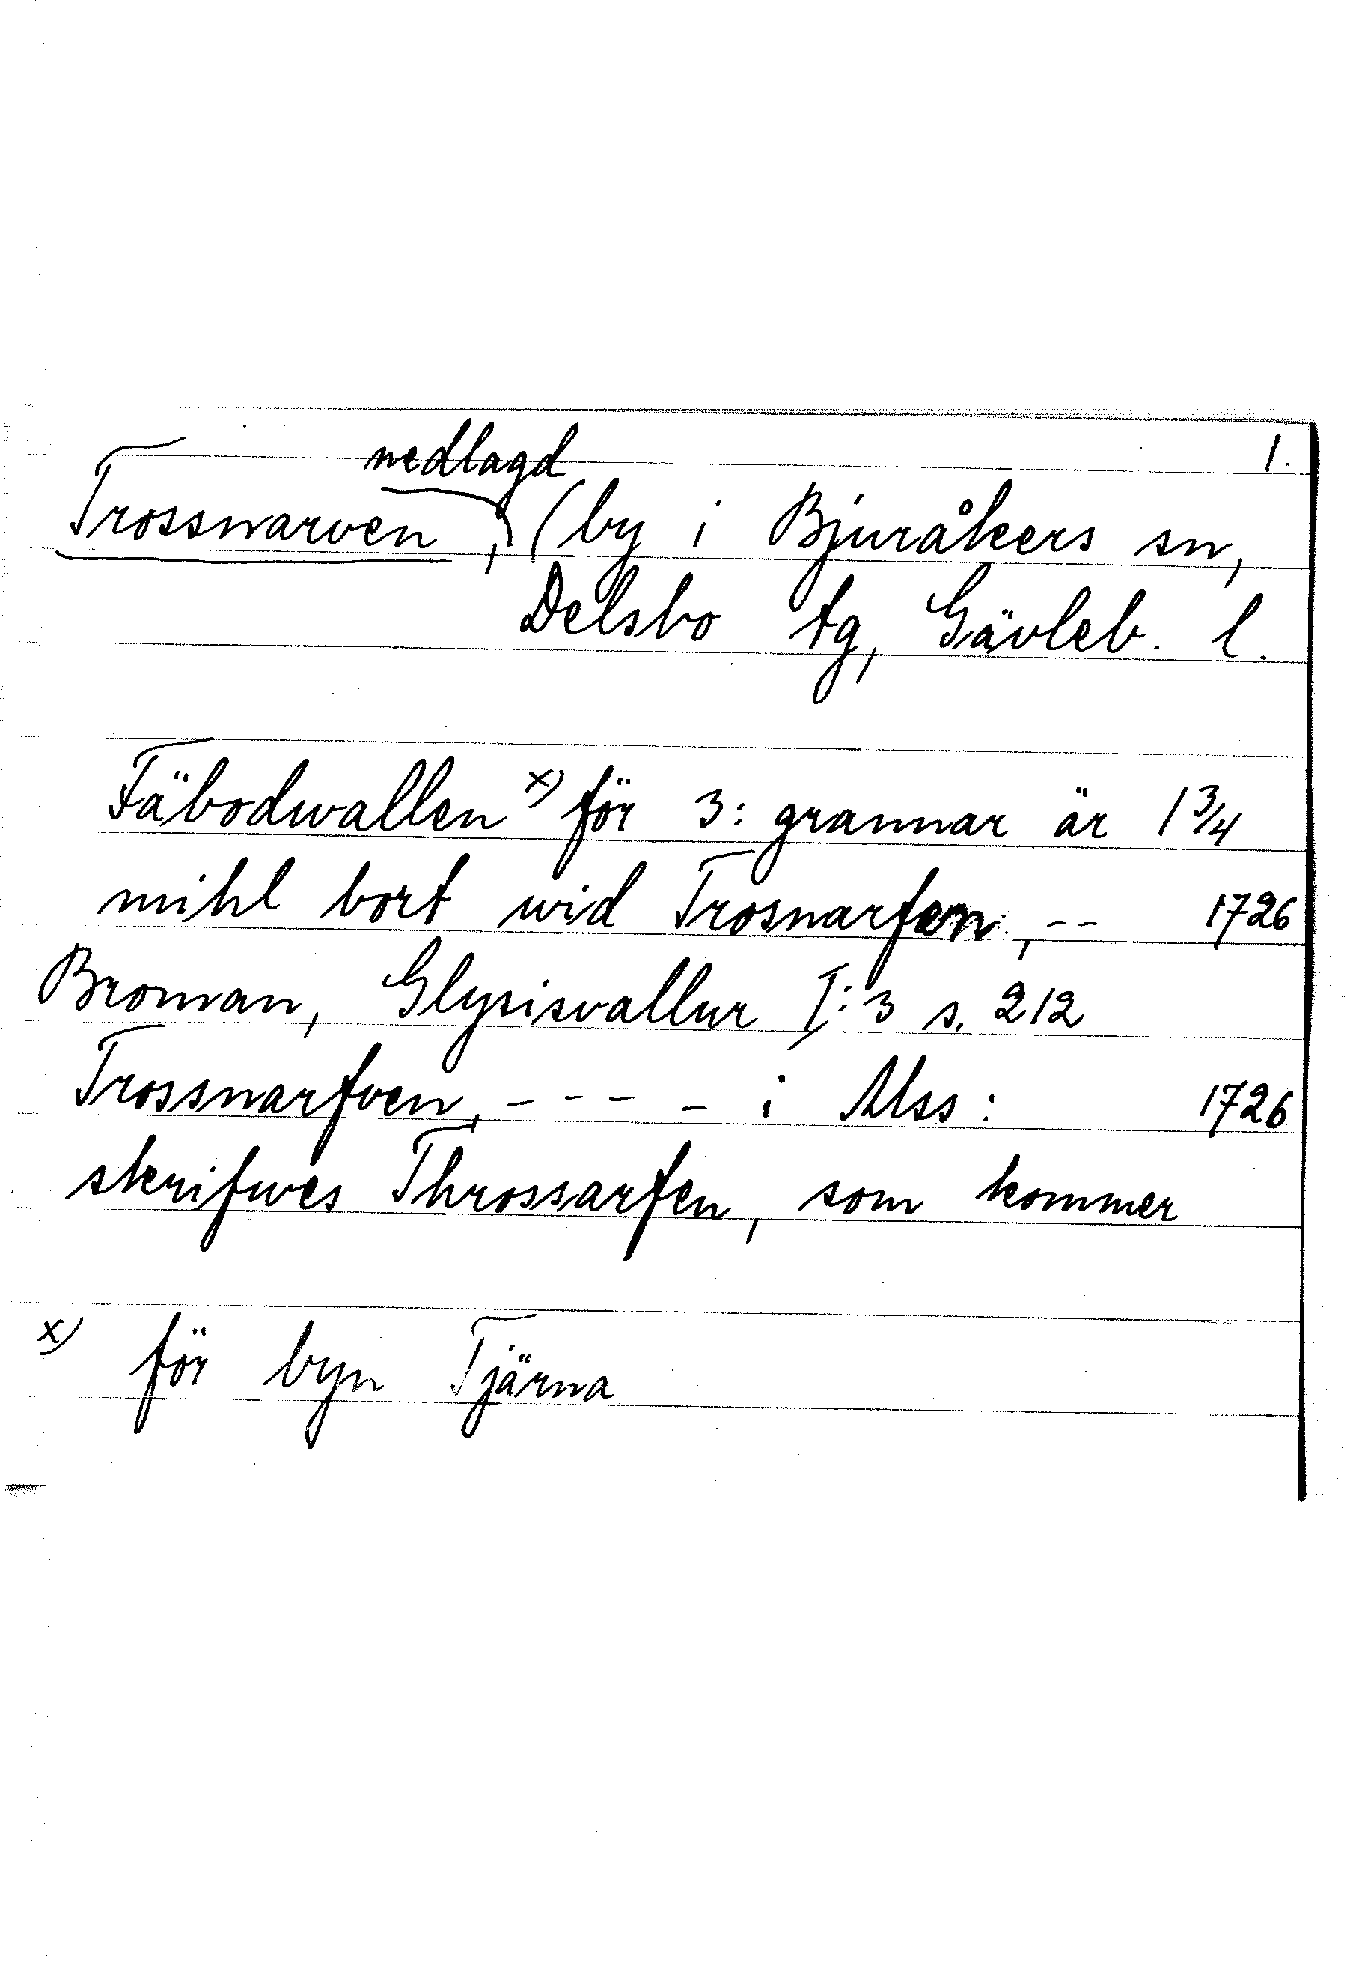 1.
nedlagd
Trossnarven, (by i Bjuråkers sn,
Delsbo tg, Gävleb. l.
Fäbodwallen x) för 3: grannar är 1 3/4
mihl bort wid Trosnarfen, -- 1726
Broman, Glysisvallur I:3 s. 212
Trossnarfven, - - - - i Mss: 1726
skrifwes Throssarfen, som kommer
x) för byn Tjärna